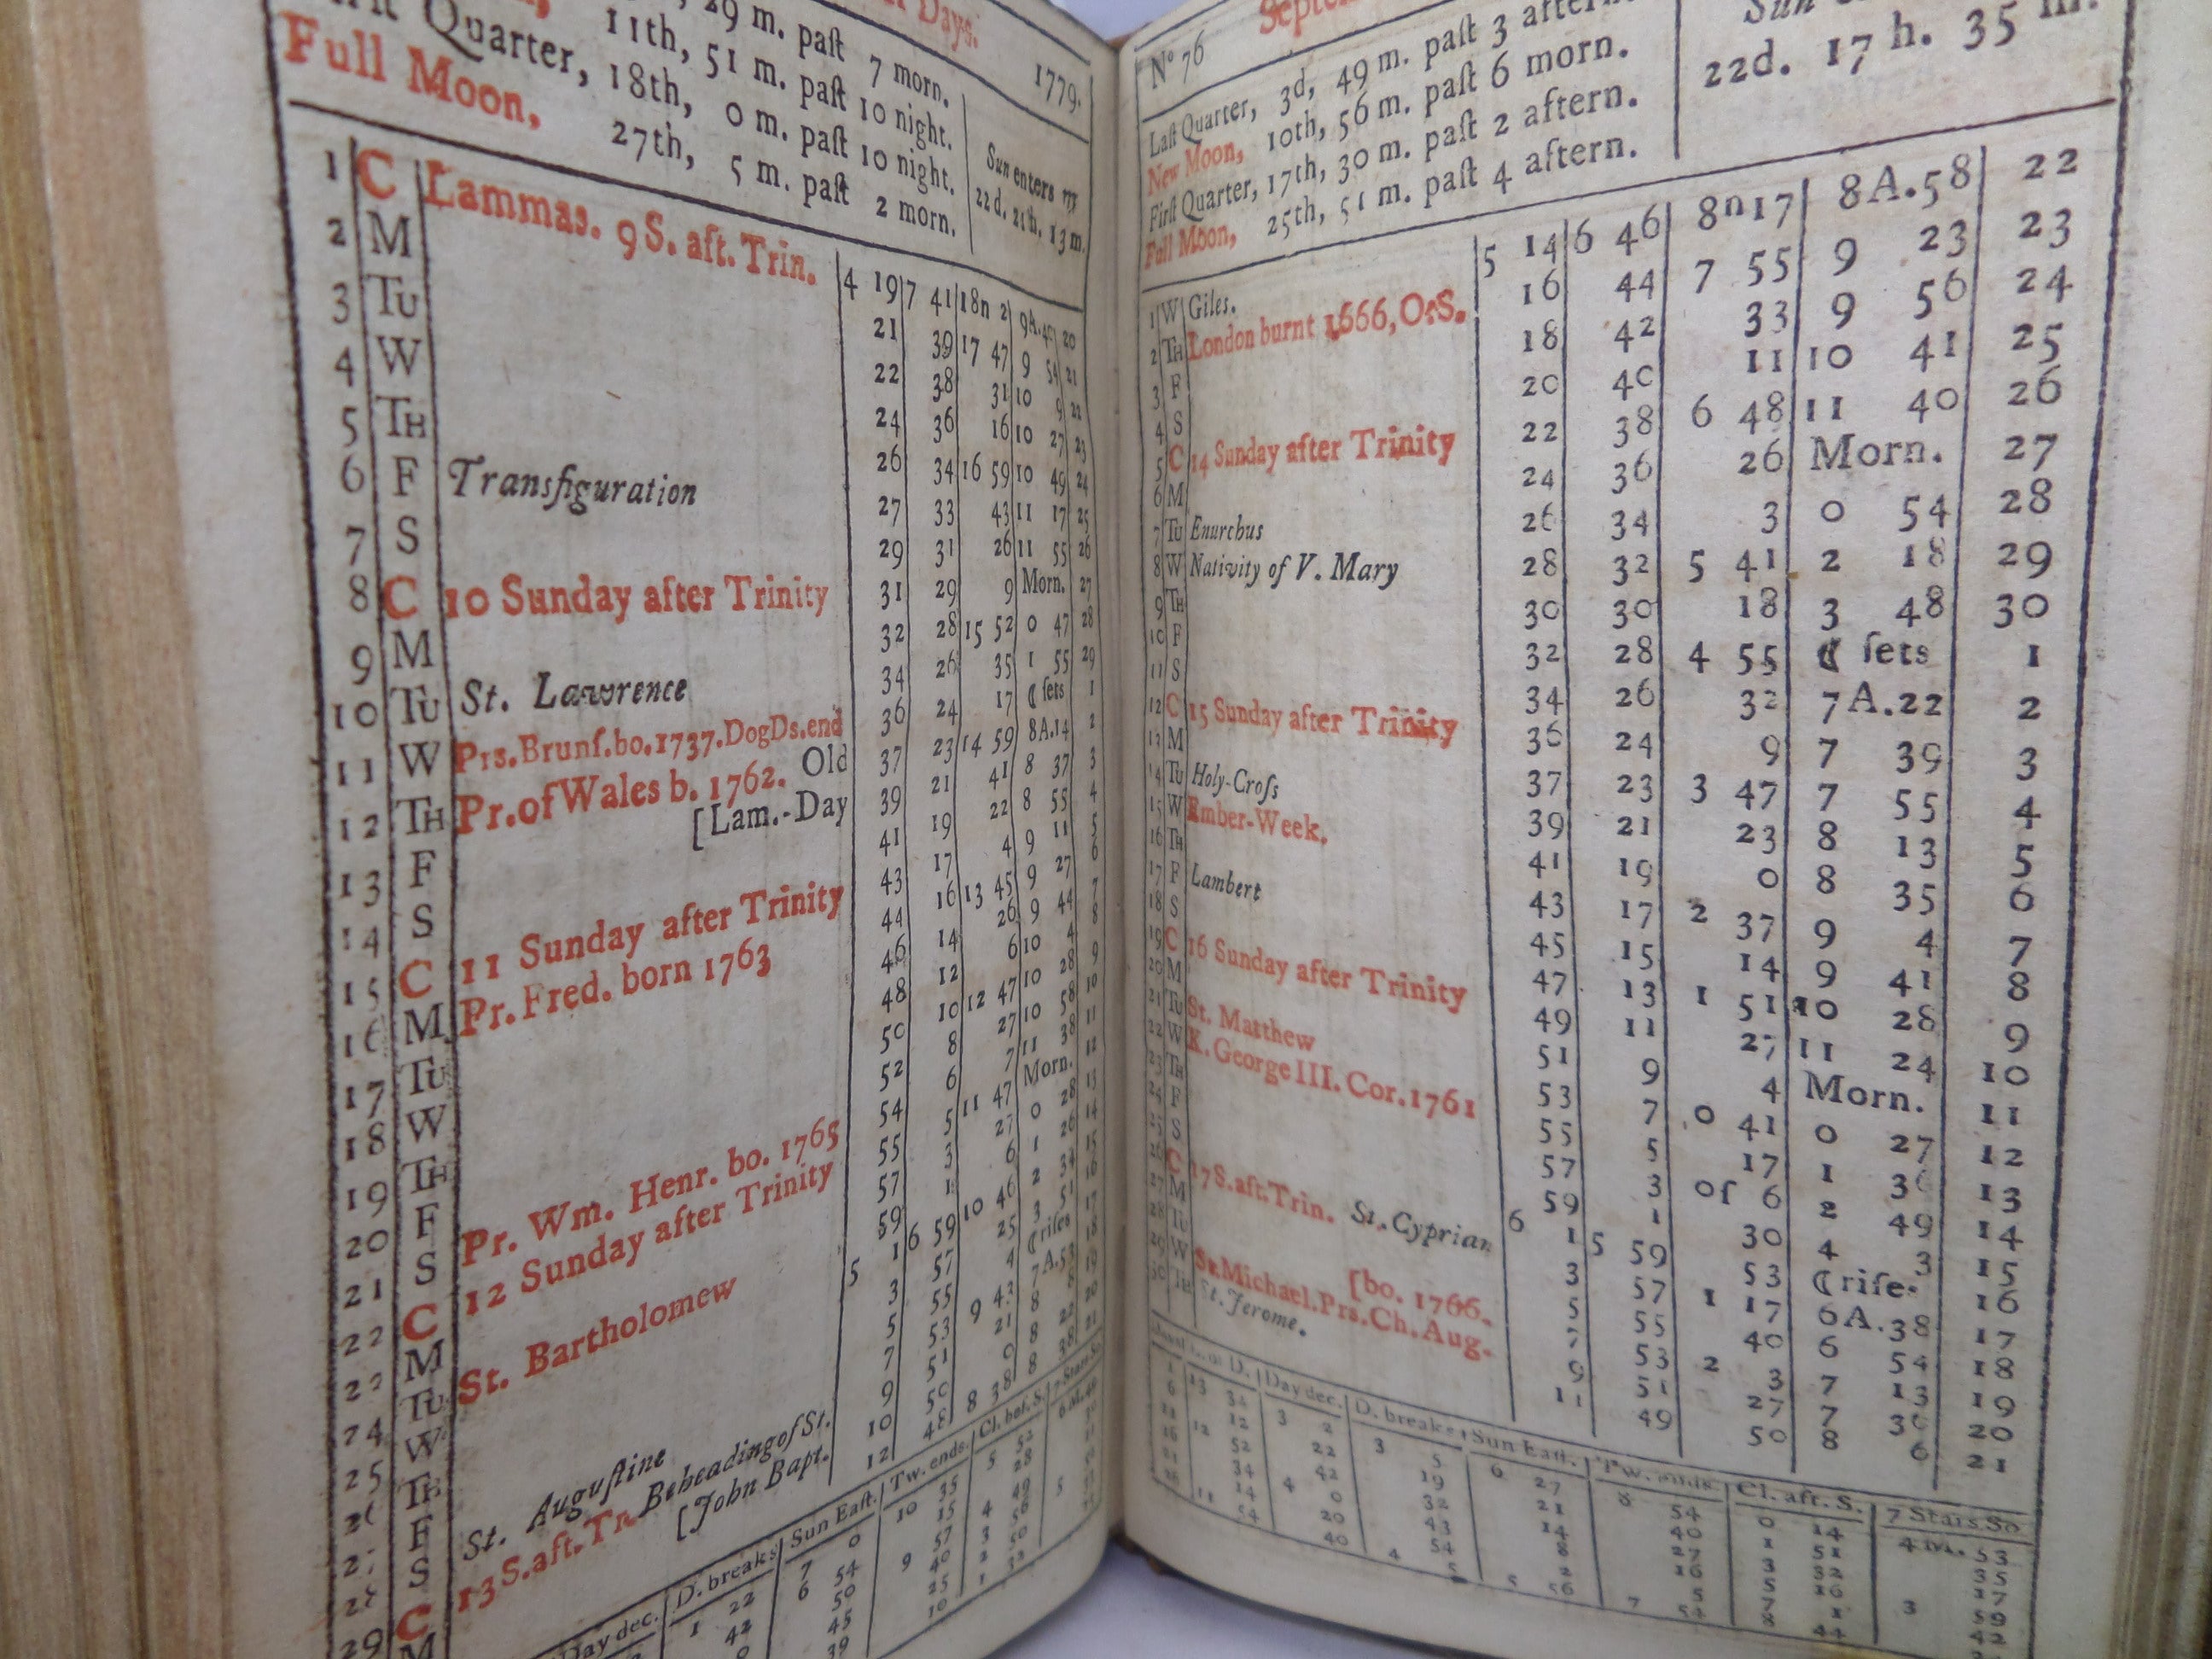 Days.
1779.
29 m. past 7 morn.
11th, 51 m. past 10 night.
Quarter, 18th, 0 m. past 10 night.
Full Moon, 27th, 5 m. past 2 morn.
Sun enters ♍
22d. 21h. 13m.
1 C Lammas. 9 S. aft. Trin. 4 19 7 41 18n 2 9A. 20
2 M 21 39 17 47 9 54 21
3 Tu 22 38 31 10 9 22
4 W 24 36 16 10 27 23
5 Th 26 34 16 59 10 49 24
6 F Transfiguration 27 33 43 11 17 25
7 S 29 31 26 11 55 26
8 C 10 Sunday after Trinity 31 29 9 Morn. 27
9 M 32 28 15 52 0 47 28
10 Tu St. Lawrence 34 26 35 1 55 29
11 W Prs. Brunſ. bo. 1737. Dog Ds. end 36 24 17 ☾ ſets 1
12 Th Pr. of Wales b. 1762. Old 37 23 14 59 8A.14 2
[Lam.-Day
13 F 39 21 41 8 37 3
14 S 41 19 22 8 55 4
15 C 11 Sunday after Trinity 43 17 4 9 11 5
16 M Pr. Fred. born 1763 44 16 13 45 9 27 6
17 Tu 46 14 26 9 44 7
18 W 48 12 6 10 4 8
19 Th 50 10 12 47 10 28 9
20 F 52 8 27 10 58 10
21 S Pr. Wm. Henr. bo. 1765 54 6 7 11 38 11
22 C 12 Sunday after Trinity 55 5 11 47 Morn. 12
23 M 57 3 27 0 28 13
24 Tu St. Bartholomew 59 1 6 1 26 14
25 W 5 1 6 59 10 46 2 34 15
26 Th 3 57 25 3 51 16
27 F 5 55 4 ☾ riſes 17
28 S St. Auguſtine 7 53 9 43 7A.53 18
29 C 13 S. aft. Tr. Beheading of St. 9 51 21 8 19
[John Bapt.
M 10 50 0 8 22 20
12 48 8 38 8 38 21
Day dec. D. breaks Sun Eaſt. Tw. ends. Cl. bef. S. 7 Stars So.
1 22 7 0 10 35 5 52
42 6 54 15 28
50 9 57 4 49
45 40 3 50
39 25 2
10 1
Nº 76
Laſt Quarter, 3d, 49 m. paſt 3 aftern.
New Moon, 10th, 56 m. paſt 6 morn.
Firſt Quarter, 17th, 30 m. paſt 2 aftern.
Full Moon, 25th, 51 m. paſt 4 aftern.
Sun
22d. 17h. 35 m.
1 W Giles. 5 14 6 46 8n17 8A.58 22
2 Th London burnt 1666, O.S. 16 44 7 55 9 23 23
3 F 18 42 33 9 56 24
4 S 20 40 11 10 41 25
5 C 14 Sunday after Trinity 22 38 6 48 11 40 26
6 M 24 36 26 Morn. 27
7 Tu Enurchus 26 34 3 0 54 28
8 W Nativity of V. Mary 28 32 5 41 2 18 29
9 Th 30 30 18 3 48 30
10 F 32 28 4 55 ☾ ſets 1
11 S 34 26 32 7A.22 2
12 C 15 Sunday after Trinity 36 24 9 7 39 3
13 M 37 23 3 47 7 55 4
14 Tu Holy-Croſs 39 21 23 8 13 5
15 W Ember-Week. 41 19 0 8 35 6
16 Th 43 17 2 37 9 4 7
17 F Lambert 45 15 14 9 41 8
18 S 47 13 1 51 10 28 9
19 C 16 Sunday after Trinity 49 11 27 11 24 10
20 M 51 9 4 Morn. 11
21 Tu St. Matthew 53 7 0 41 0 27 12
22 W K. George III. Cor. 1761 55 5 17 1 36 13
23 Th 57 3 0ſ 6 2 49 14
24 F 59 1 30 4 3 15
25 S 6 1 5 59 53 ☾ riſe. 16
26 C 17 S. aft. Trin. St. Cyprian 3 57 1 17 6A.38 17
27 M 5 55 40 6 54 18
28 Tu [bo. 1766. 7 53 2 3 7 13 19
29 W St. Michael. Prs. Ch. Aug. 9 51 27 7 36 20
30 Th St. Jerome. 11 49 50 8 6 21
D. Day dec. D. breaks Sun Eaſt. Tw. ends Cl. aft. S. 7 Stars So
1 13 34 3 2 3 5 6 27 8 54 0 14 4M. 53
6 12 22 19 21 40 1 51 35
11 12 52 42 32 14 27 3 32 17
16 34 4 0 43 8 16 5 16 3 59
21 14 20 54 2 5 7 1 42
26 11 54 40 4 5 5 56 7 54 8 44